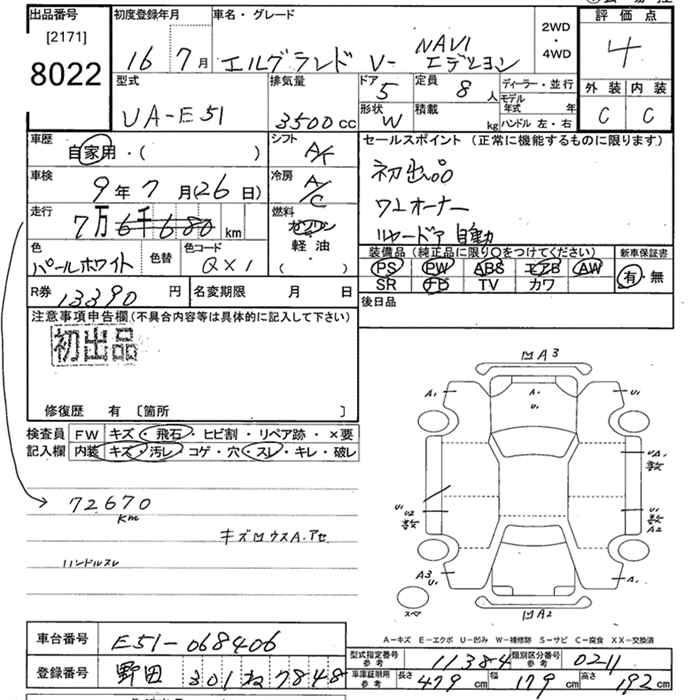 出品番号
[2171]
8022
初度登録年月
16 7月
車名・グレード
エルグランド V- NAVI
エディション
2WD
・
4WD
評価点
4
外装 内装
C C
型式
UA-E51
排気量
3500cc
ドア
5
定員
8人
ディーラー・並行
形状
W
積載
kg
モデル年式 年
ハンドル 左・右
車歴
自家用・( )
シフト
A/F
セールスポイント(正常に機能するものに限ります)
初出品
ワンオーナー
リヤードア 自動
車検
9年7月(26日)
冷房
A/C
走行
7万6千680km
燃料
ガソリン
軽油
・
( )
色
パールホワイト
色替
色コード
QX1
装備品(純正品に限り○をつけてください)
PS PW ABS エアB AW
SR ナビ TV カワ
新車保証書
有・無
R券
13390円
名変期限 月 日
後日品
注意事項申告欄(不具合内容等は具体的に記入して下さい)
初出品
修復歴 有 [箇所 ]
検査員
記入欄
FW キズ・飛石・ヒビ割・リペア跡・×要
内装 キズ・汚レ・コゲ・穴・スレ・キレ・破レ
72670
Km
キズ凹ウスA.アセ
ハンドルスレ
凹A3
A1
A1
U1
U1
U1
U2
U1
A2
A3
U1
A1
スペア
凹A2
A-キズ E-エクボ U-凹み W-補修跡 S-サビ C-腐食 XX-交換済
車台番号
E51-068406
登録番号
野田 301 ね 7848
型式指定番号
参考
11384
類別区分番号
参考
0211
車庫証明用
参考
長さ 479cm
幅 179cm
高さ 192cm